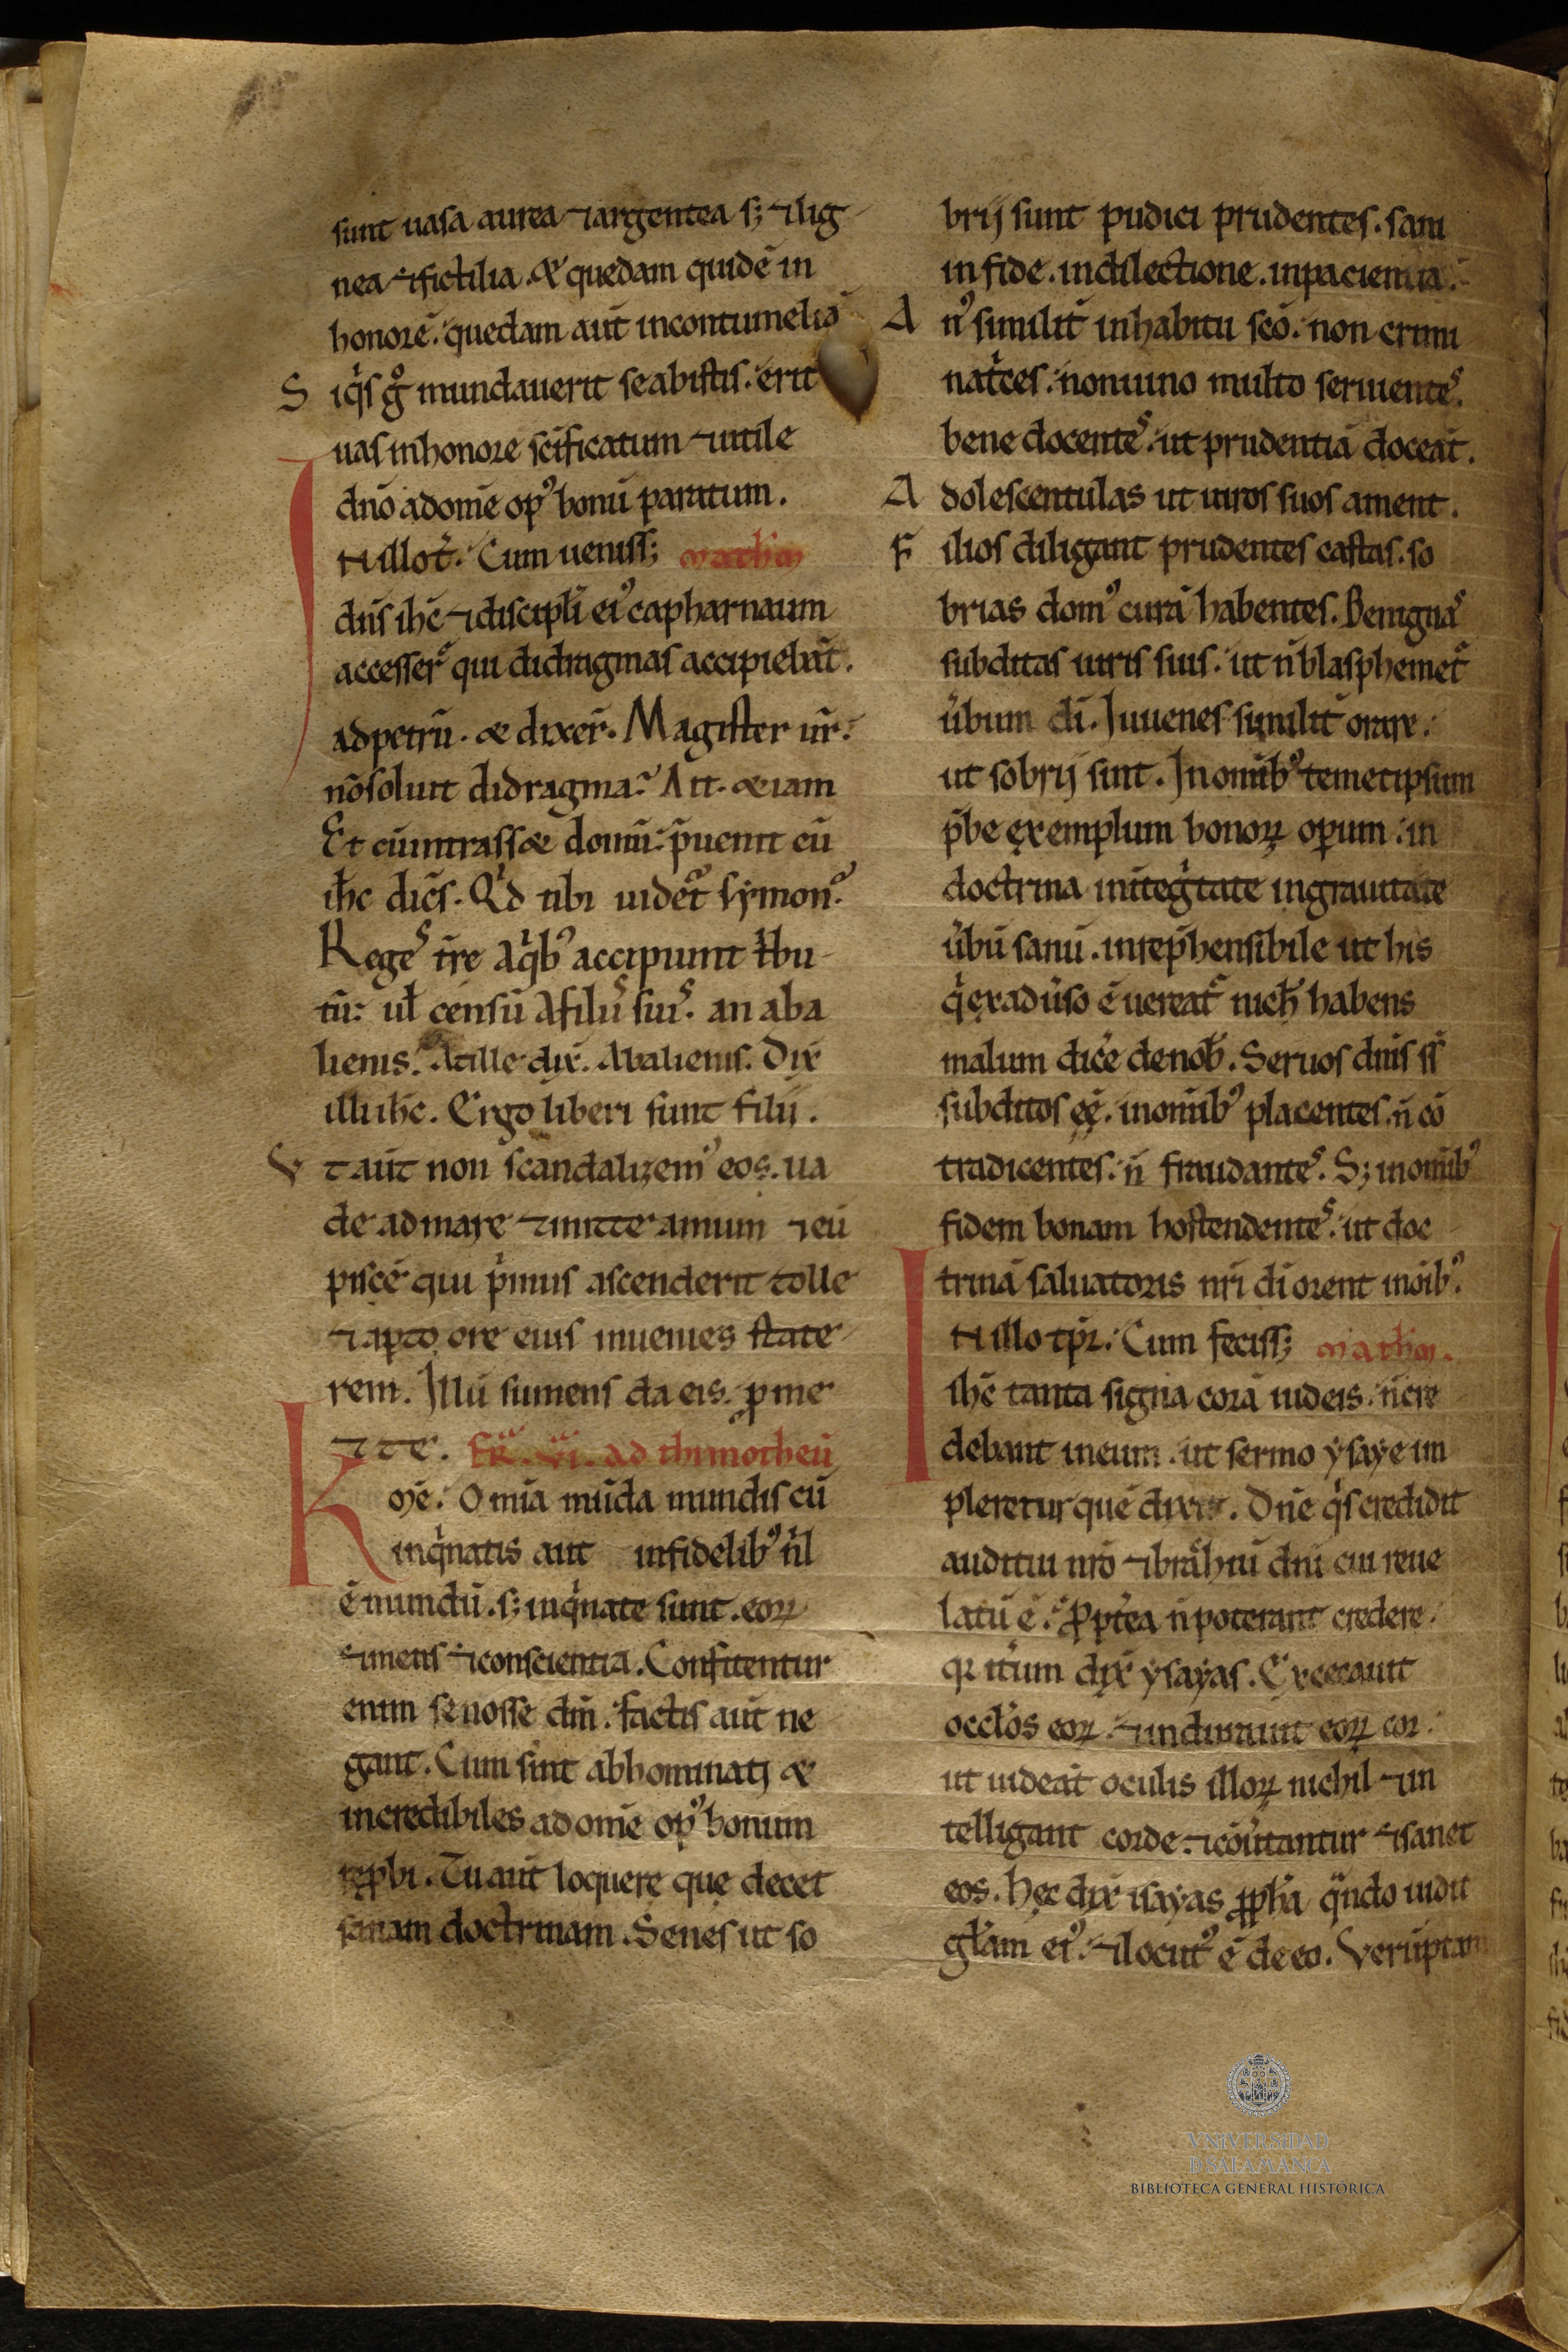 sunt uasa aurea ⁊ argentea s; ⁊ lig
nea ⁊ fictilia. & quedam quidē in
honorē. quedam aut̄ in contumeliā
S iq̇s gͦ mundauerit se ab istis. erit
uas in honore sc̄ificatum ⁊ utile
dn̄o ad om̄e opꝰ bonū paratum.
In illo t̄. Cum ueniss; Matħm
dn̄s ih̄c ⁊ discipłi eiꝰ capharnaum
accesser̄ qui didragmas accipiebāt.
ad petrū. & dixer̄. Magister ur̄.
nō soluit didragma? Ait. & iam
Et cū intrass& domū. p̄uenit eū
ih̄c dicēs. Qḋ tibi uidet̄ symon?
Regeˢ tr̄e a q̇bꝰ accipiunt t̍bu
tū. ul̄ censū A filiiˢ suiˢ. an ab a
lienis? At ille dix̄. Ab alienis. Dix̄
illi ih̄c. Ergo liberi sunt filii.
V t aut̄ non scandalizemꝰ eos. ua
de ad mare ⁊ mitte amum ⁊ eū
piscē qui p̍mus ascenderit tolle
⁊ aꝑto ore eius inuenies state
rem. Illū sumens da eis. ꝓ me
⁊ te. FR̄. VI. ad thimotheū
Kr̄me. Om̄ia mūda mundis cū
inq̍natis aut infidelibꝰ nīl
ē mundū. s; inq̍nate sunt. eoꝝ
⁊ mens ⁊ conscientia. Confitentur
enim se nosse dm̄. factis aut̄ ne
gant. Cum sint abhominati &
incredibiles ad om̄e opꝰ bonum
reꝓbi. Tu aut̄ loquere que decet
sanam doctrinam. Senes ut so
brij sunt pudici prudentes. sani
in fide. in dilectione. in paciencia.
A nꝰ similit̄ in habitu sc̄o. non crimi
nat̍ces. non uino multo seruienteˢ.
bene docenteˢ. ut prudentiā doceāt.
A dolescentulas ut uiros suos ament.
F ilios diligant prudentes castas. so
brias domꝰ curā habentes. Benignaˢ
subditas uiris suis. ut n̄ blasphemet̄
u̍bum di. Iuuenes similit̄ orare.
ut sobrij sint. In om̄ibꝰ temetipsum
p̄be exemplum bonoꝝ oꝑum. in
doctrina in integ̍tate in grauitate
u̍bū sanū. inrep̄hensibile ut his
q̍ ex adu̍so ē uereat̄ nich̄ habens
malum dice̍ de nob̄. Seruos dn̄is ss̄
subditos eē. in om̄ibꝰ placentes. n̄ cō
tradicentes. n̄ fraudanteˢ. S; in om̄ibꝰ
fidem bonam hostendenteˢ. ut doc
trinā saluatoris nr̄i di orent in oīb̄ꝰ.
In illo tp̄r. Cum feciss; Matħm.
ih̄c tanta signa corā iudeis. n̄ cre
debant in eum. ut sermo ysaye im
pleretur quē dixit. Dn̄e q̍s credidit
auditui nr̄o ⁊ brāhiū dn̄i cui reue
latū ē? Ꝓpt̍ea n̄ poterant credere.
qꝛ it̍um dix̄ ysayas. Excecauit
occłos eoꝝ. ⁊ indurauit eoꝝ cor.
ut uideāt oculis illoꝝ nichil ⁊ in
telligant corde ⁊ cōu̍tantur ⁊ sanet
eos. Hec dix̄ isayas ꝓph̄a qn̄do uidit
gl̄am eiꝰ. ⁊ locutꝰ ē de eo. Verūptam
VNiVERSiDAD
D SALAMANCA
BIBLIOTECA GENERAL HISTÓRICA